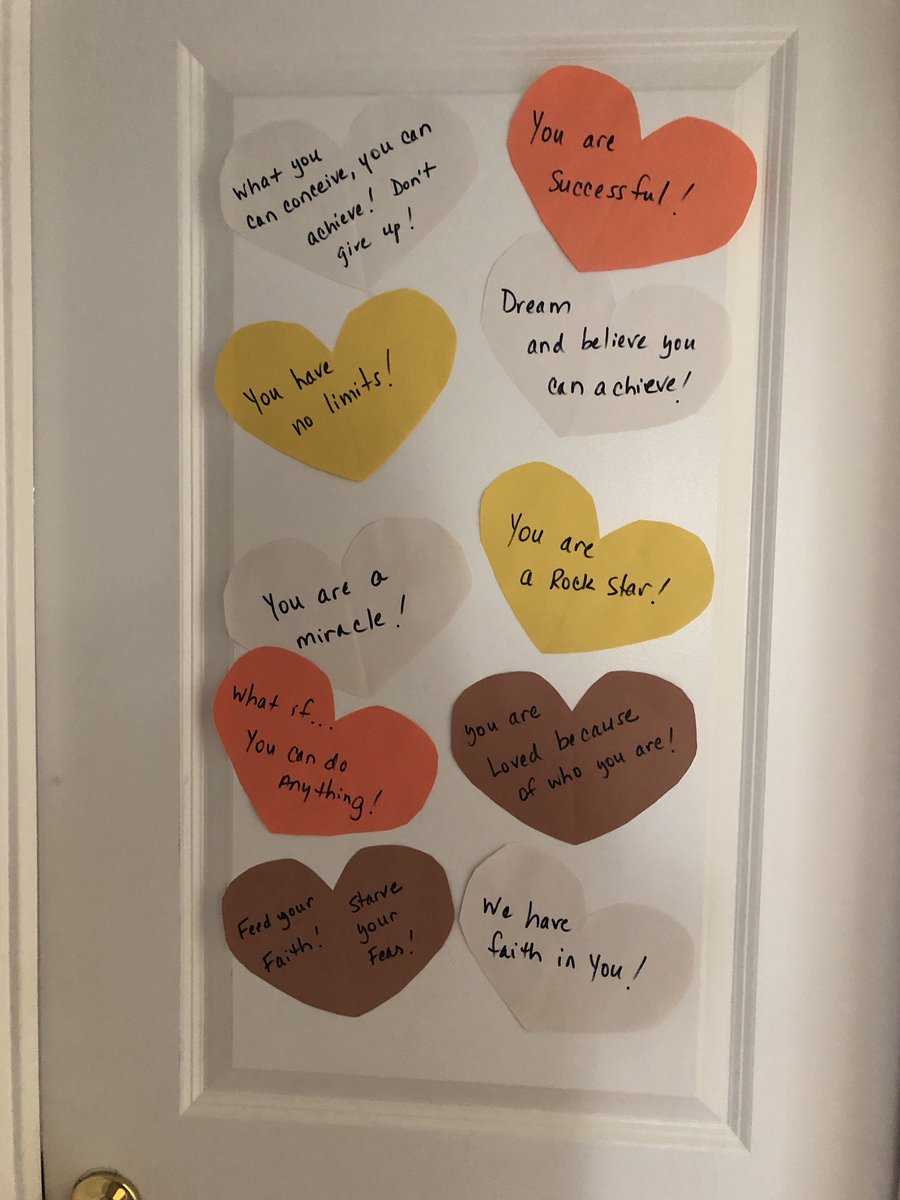 What you
can conceive, you can
achieve! Don't
give up!
You are
Successful!
You have
no limits!
Dream
and believe you
can achieve!
You are a
miracle!
You are
a Rock Star!
What if...
You can do
Anything!
you are
Loved because
of who you are!
Feed your
Faith!
Starve
your
Feas!
We have
faith in You!